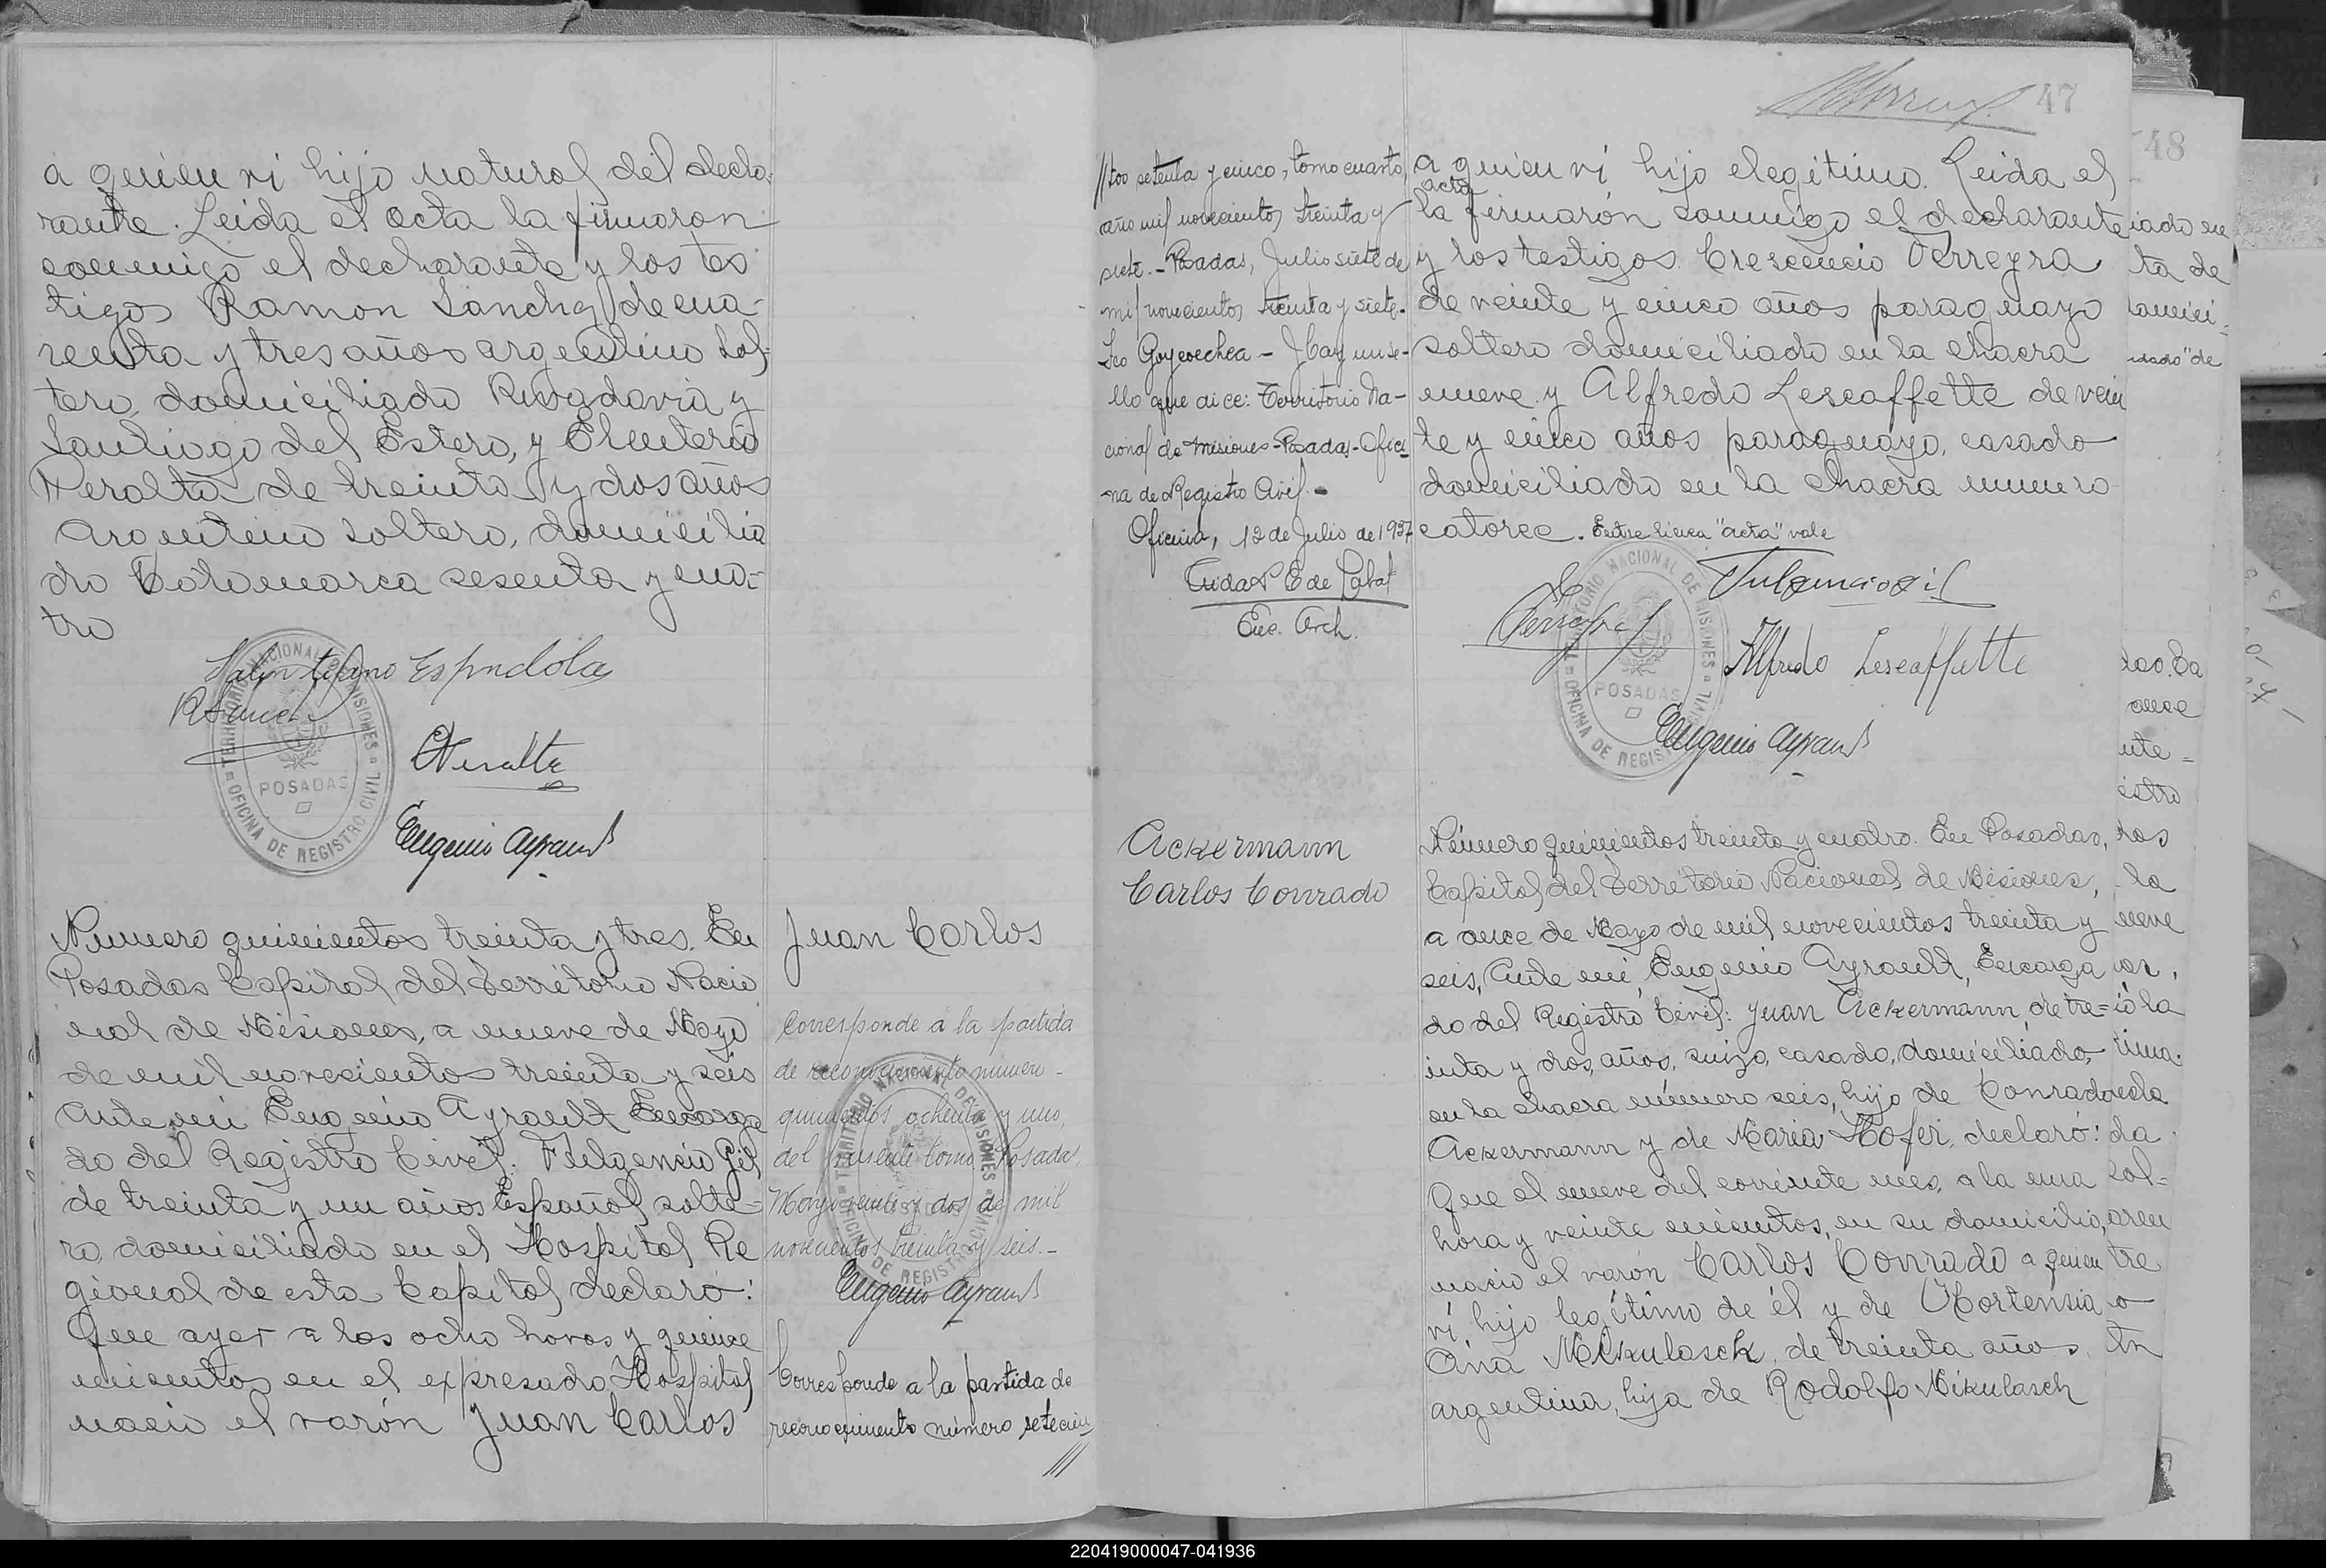 a quien vi hijo natural del decla-
rante. Leida el acta la firmaron
conmigo el declarante y los tes
tigos Ramon Sanchez de cua-
renta y tres años argentino sol-
tero, domiciliado Rivadavia y
Santiago del Estero, y Eleuterio
Peralta de treinta y dos años
argentino soltero, domicilia
do Catamarca sesenta y cua-
tro
Espindola
TERRITORIO NACIONAL DE MISIONES
POSADAS
OFICINA DE REGISTRO CIVIL
EPeralta
Eugenio Ayrault
Numero quinientos treinta y tres. En
Posadas Capital del Territorio Nacio
nal de Misiones, a nueve de Mayo
de mil novecientos treinta y seis
Ante mi Eugenio Ayrault Encarga
do del Registro Civil: Fulgencio Gil
de treinta y un años Español solte-
ro, domiciliado en el Hospital Re
gional de esta Capital declaró:
Que ayer a las ocho horas y quince
minutos en el expresado Hospital
nacio el varón Juan Carlos
Juan Carlos
Corresponde a la partida
de reconocimiento número
quinientos ochenta y uno,
del presente tomo Posadas,
Mayo veinte y dos de mil
novecientos treinta y seis.-
Eugenio Ayrault
Corresponde a la partida de
reconocimiento número setecien
///
47
//tos setenta y cinco, tomo cuarto,
año mil novecientos treinta y
siete.- Posadas, Julio siete de
mil novecientos treinta y siete.
Leo Goycoechea - Hay un se-
llo que dice: Territorio Na-
cional de Misiones-Posadas-Ofici
na de Registro Civil.-
Oficina, 12 de Julio de 1937
Enc. Arch.
a quien vi hijo elegitimo. Leida el
acta
la firmarón conmigo el declarante
y los testigos. Crescencio Ferreyra
de veinte y cinco años paraguayo
soltero domiciliado en la chacra
nueve y Alfredo Lescaffette de vein
te y cinco años paraguayo, casado
domiciliado en la chacra numero
catorce. Entre linea "acta" vale
Fulgencio Gil
CFerreyra
TERRITORIO NACIONAL DE MISIONES
POSADAS
OFICINA DE REGISTRO CIVIL
Alfredo Lescaffette
Eugenio Ayrault
Ackermann
Carlos Conrado
Número quinientos treinta y cuatro. En Posadas,
Capital del Territorio Nacional de Misiones,
a once de Mayo de mil novecientos treinta y
seis, Ante mi, Eugenio Ayrault, Encarga
do del Registro Civil: Juan Ackermann, de tre-
inta y dos, años, suizo, casado, domiciliado,
en la chacra número seis, hijo de Conrado
Ackermann y de Maria Hofer, declaró:
Que el nueve del corriente mes, a la una
hora y veinte minutos, en su domicilio,
nació el varón Carlos Conrado a quien
vi, hijo legítimo de él y de Hortensia
Ana Mikulasck, de treinta años,
argentina, hija de Rodolfo Mikulasch
48
220419000047-041936